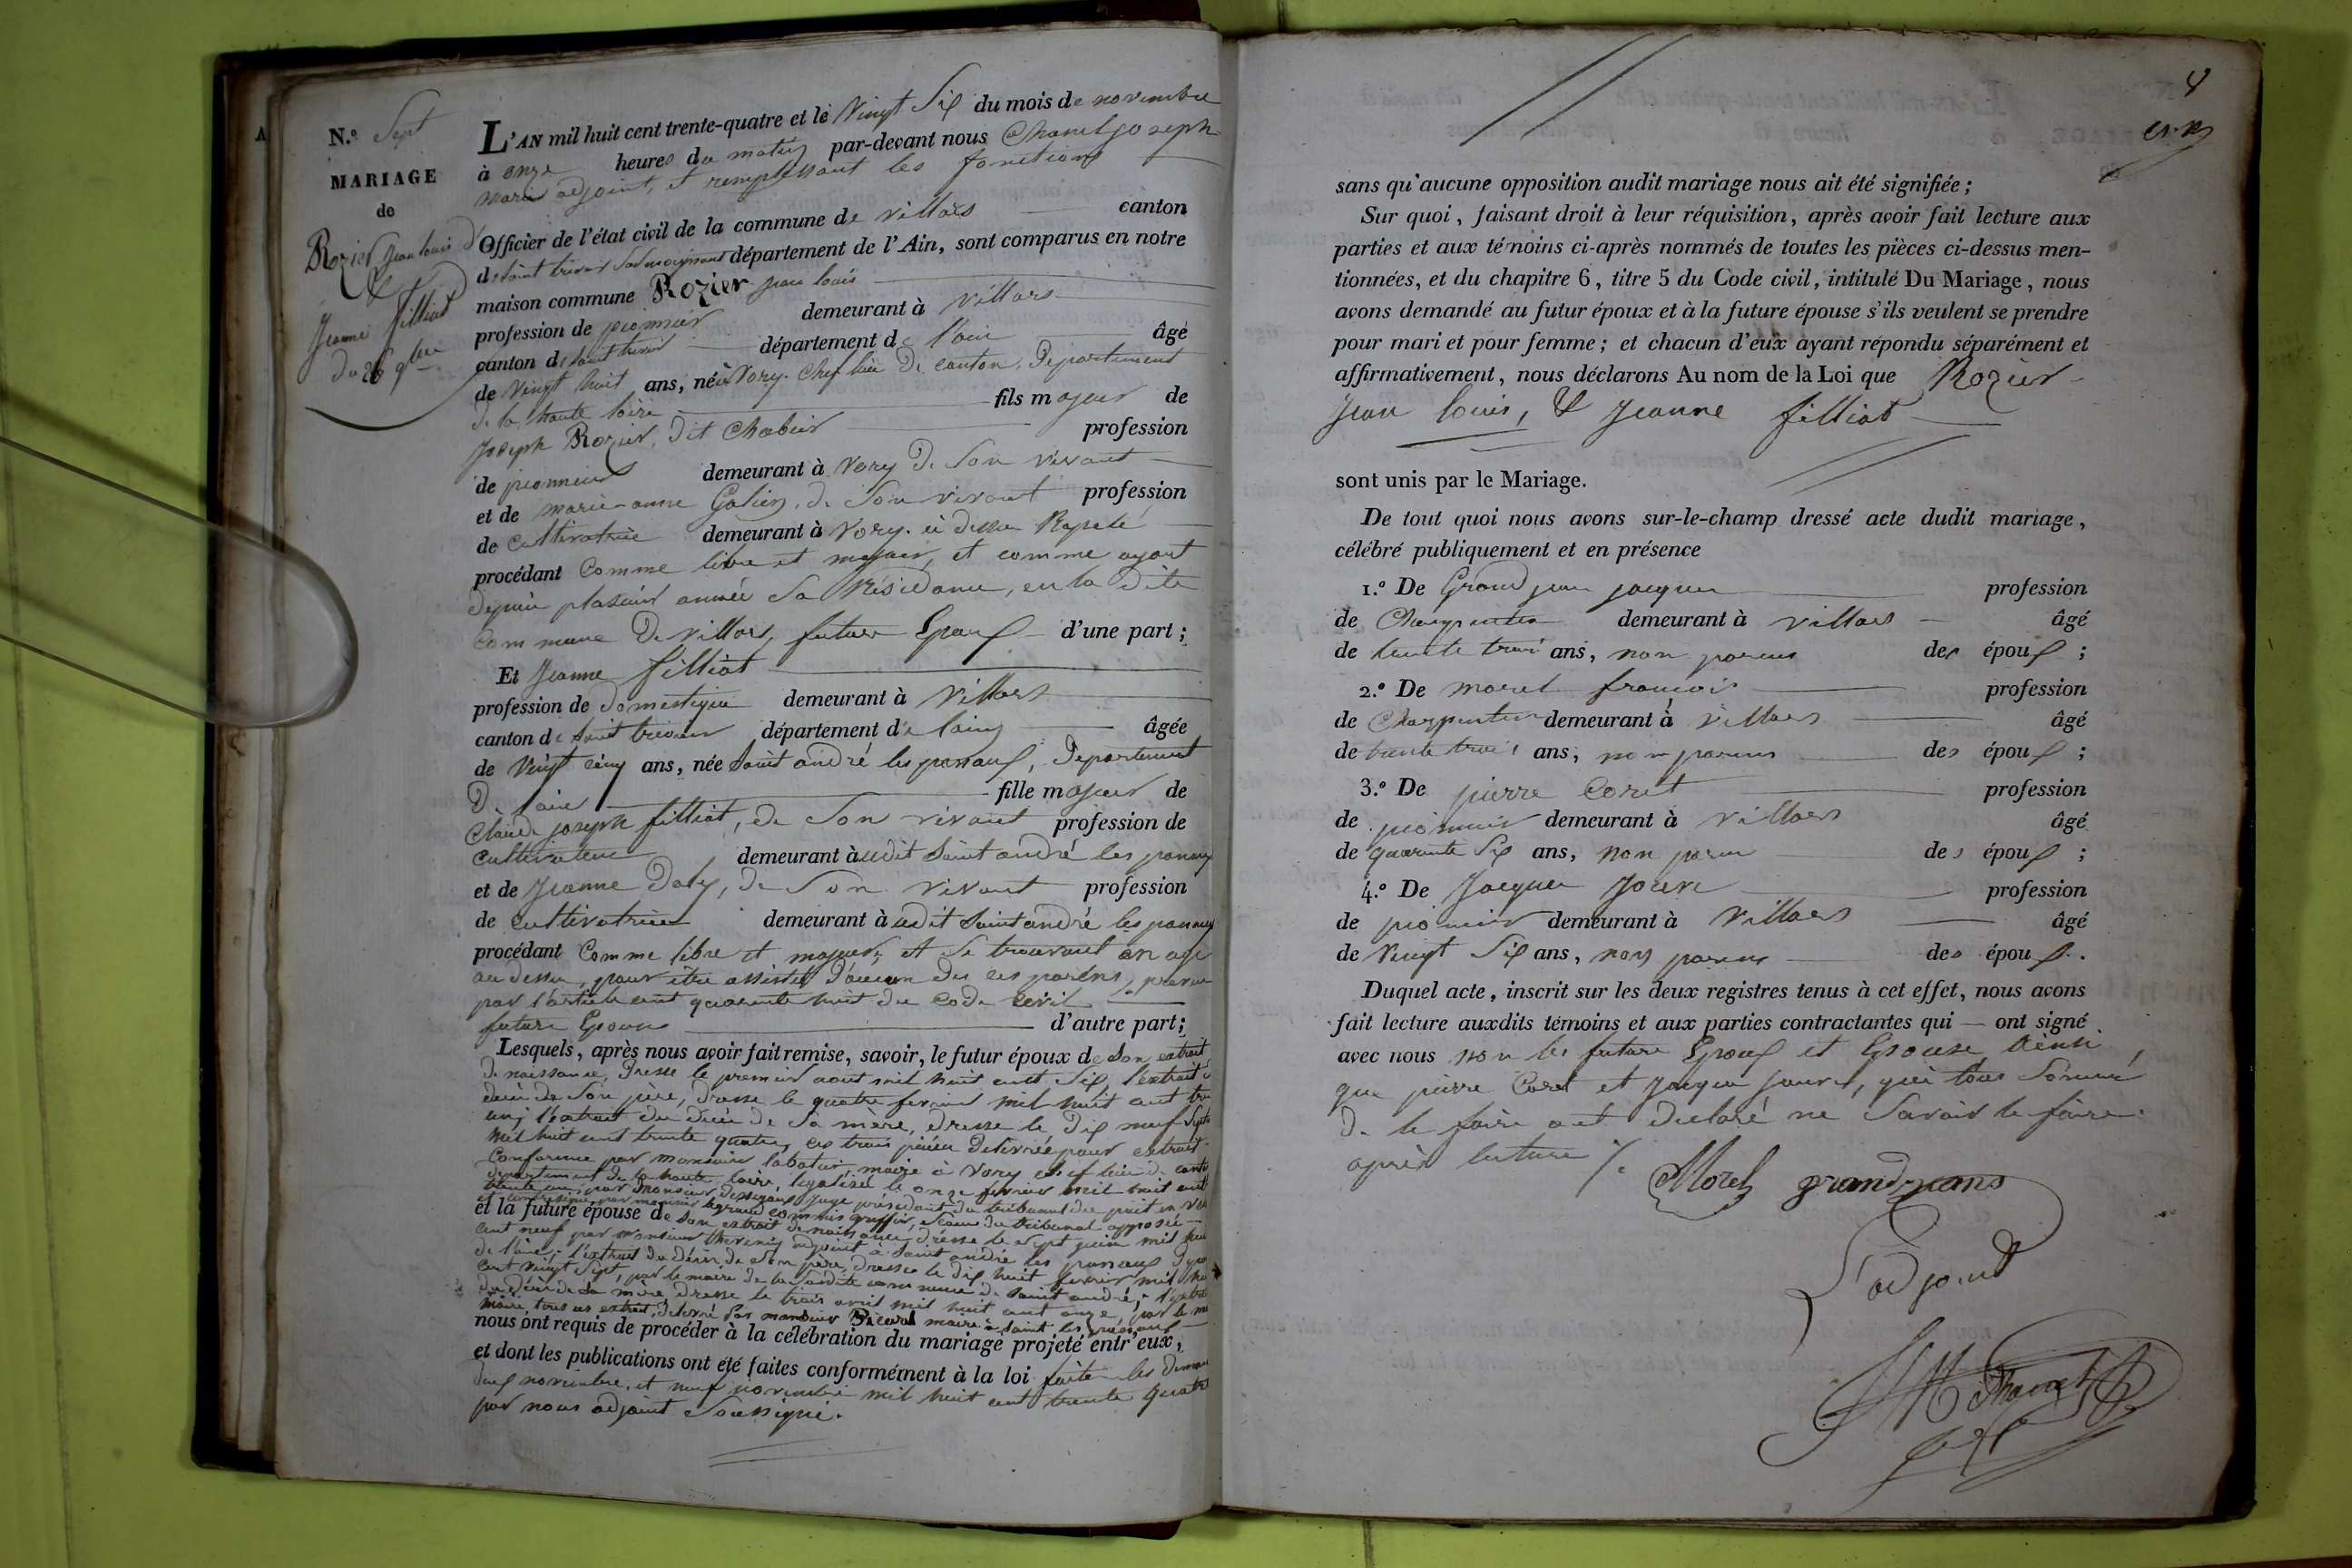 N.o Sept
MARIAGE
de
Rozier Jean louis d'
&
Jeanne filliat
Du 26 9bre
L'AN mil huit cent trente-quatre et le Vingt Six du mois de novembre
à onze heures du matin par-devant nous Chanel joseph
maire adjoint, et remplissant les fonctions
Officier de l'état civil de la commune de villars canton
de saint trivier département de l'Ain, sont comparus en notre
maison commune Rozier jean louis
profession de pionnier demeurant à villars
canton de saint trivier département de l'ain âgé
de vingt huit ans, né à Vory. Chef lieu De canton, Departement
de la haute loire fils majeur de
Joseph Rozier, dit Chabier profession
de pionnier demeurant à Vory De son vivant
et de marie-anne Galien, de Son vivant profession
de cultivatrice demeurant à Vory. ci dessu Repeté
procédant Comme libre et majeur, et comme ayant
depuis plusieur année sa Résidance, en la dite
Commune De villars, future Epoux d'une part;
Et Jeanne filliat
profession de domestique demeurant à Villars
canton de saint trivier département de lain âgée
de Vingt cinq ans, née saint andré les panoux, Departement
De lain fille majeur de
Claude joseph filliat, de Son vivant profession de
cultivateur demeurant à udit saint andré les panoux
et de Jeanne Daly, de Son vivant profession
de cultivatrice demeurant à udit saint andré les panoux
procédant Comme libre et majeure, et se trouvant an age
au dessu, pour être assisté D'aucun des ces parens, prevue
par l'article cent quarante huit du code civil
future Epouse d'autre part;
Lesquels, après nous avoir fait remise, savoir, le futur époux de son extrait
de naissance, Dresse le premier aout mil huit cent Six, l'extrait
decè de Son père, dresse le quatre fevrier mil huit cent
un; l'extrait du decè de Sa mère, dresse le Dix neuf
mil huit cent trente quatre, ces trois pièces Delivrée pour extrait
Conforme par monsieur labatie, maire à Vory chef lieu de canton
departement de la haute loire, legalisée le onze fevrier mil huit cent
trente par Monsieur juge président du tribunal
et commis greffier, Sceau du tribunal apposée
et la future épouse de son extrait de naissance Dresse le Sept juin mil huit
cent neuf par monsieur thevenin adjoint à Saint andré les panoux
de l'ain; l'extrait du décès de son père, dresse le dix huit fevrier mil huit
cent vingt Sept, par le maire de la Susdite commune de saint andré; l'extrait
du Décè de sa mère dresse le trois avril mil huit cent onze, par le
maire, tous ces extrait delivré par monsieur maire à saint les panoux
nous ont requis de procéder à la célébration du mariage projeté entr'eux,
et dont les publications ont été faites conformément à la loi faite les
deux novembre, et neuf novembre mil huit cent trente quatre
par nous adjoint Soussigné.
4
sans qu'aucune opposition audit mariage nous ait été signifiée;
Sur quoi, faisant droit à leur réquisition, après avoir fait lecture aux
parties et aux témoins ci-après nommés de toutes les pièces ci-dessus men-
tionnées, et du chapitre 6, titre 5 du Code civil, intitulé Du Mariage, nous
avons demandé au futur époux et à la future épouse s'ils veulent se prendre
pour mari et pour femme; et chacun d'eux ayant répondu séparément et
affirmativement, nous déclarons Au nom de la Loi que Rozier
Jean louis, & Jeanne filliat
sont unis par le Mariage.
De tout quoi nous avons sur-le-champ dressé acte dudit mariage,
célébré publiquement et en présence
1.o De Grand jean jacques profession
de Charpentier demeurant à villars âgé
de trente trois ans, non parens des époux;
2.o De morel françois profession
de Charpentier demeurant à villars âgé
de trente trois ans, non parens des époux;
3.o De pierre Coret profession
de pionnier demeurant à villars âgé
de quarante Six ans, non paren des époux;
4.o De Jacques Jouve profession
de pionnier demeurant à villars âgé
de Vingt Six ans, non parens des époux.
Duquel acte, inscrit sur les deux registres tenus à cet effet, nous avons
fait lecture auxdits témoins et aux parties contractantes qui — ont signé
avec nous non les future Epoux et Epouse ainsi
que pierre Coret et jacque jouve, qui tous Sommé
De le faire ont declaré ne Savoir le faire.
après lecture /.
Morel grandjeans
L'adjoint
Chanel